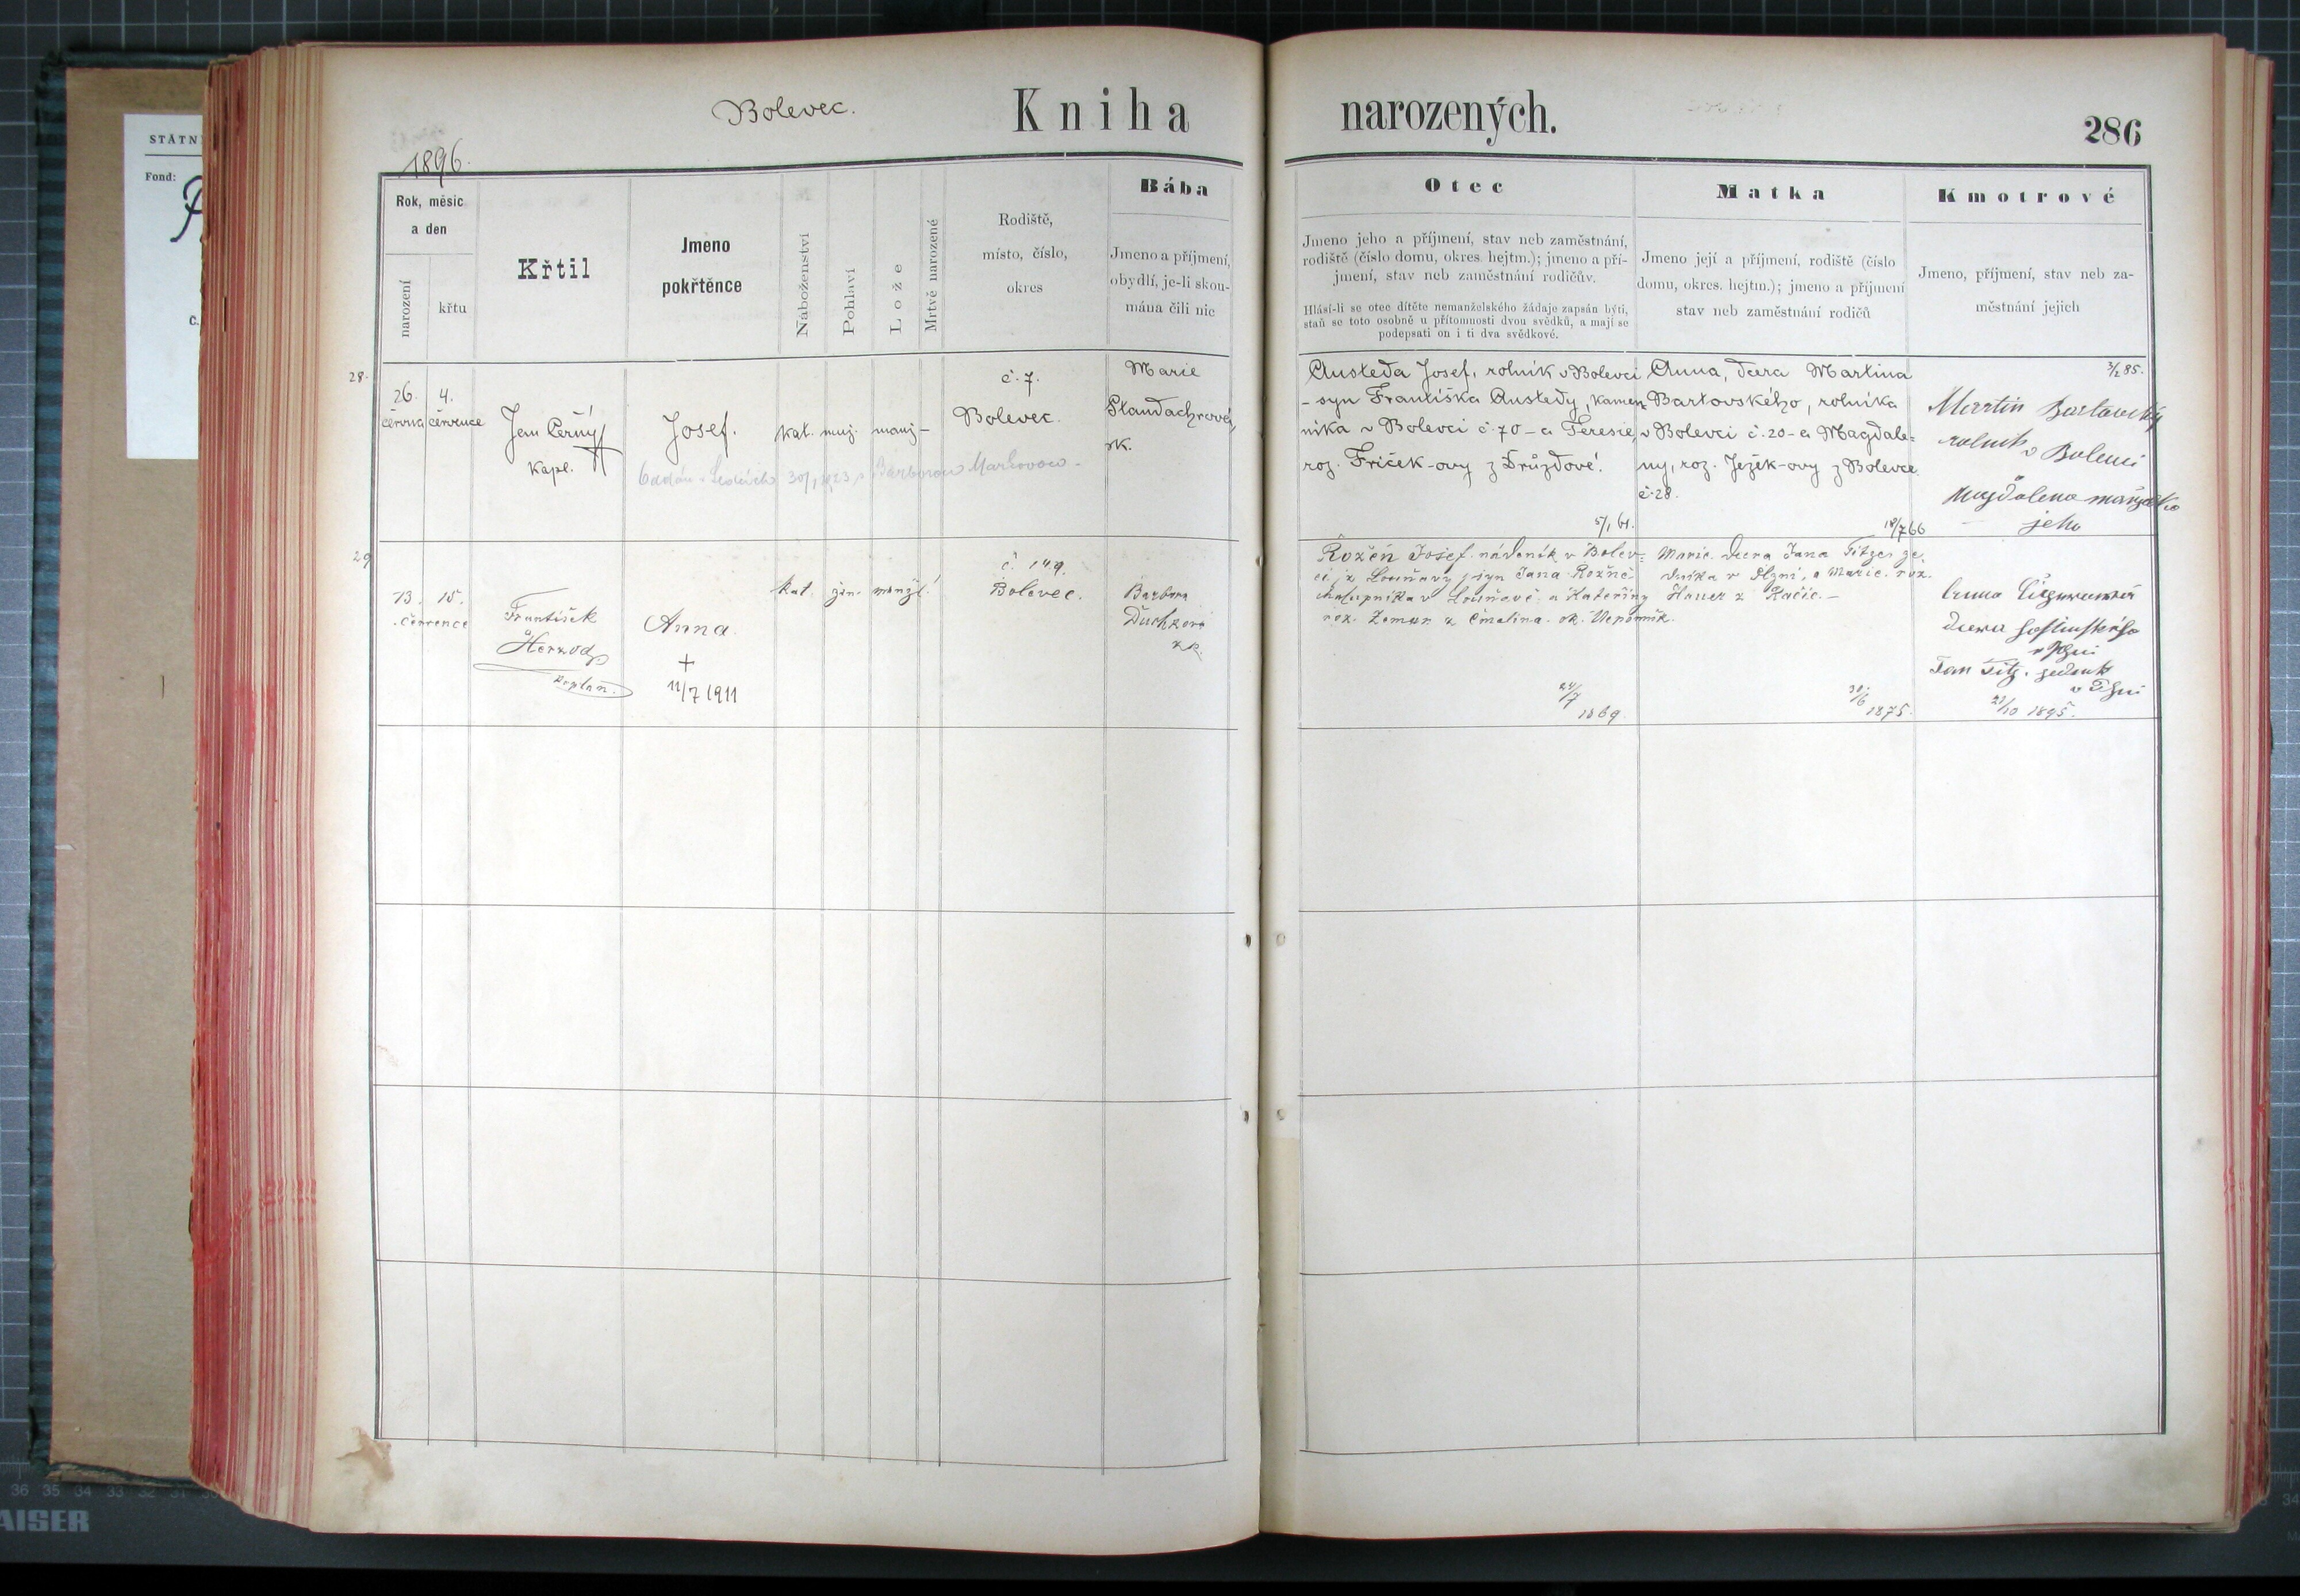 STÁTN
Fond:
c.
Bolevec.
Kniha narozených.
286
1896.
Rok, měsíc
a den
narození
křtu
Křtil
Jmeno
pokřtěnce
Náboženství
Pohlaví
Lože
Mrtvě narozené
Rodiště,
místo, číslo,
okres
Bába
Jmeno a příjmení,
obydlí, je-li skou-
mána čili nic
Otec
Jmeno jeho a příjmení, stav neb zaměstnání,
rodiště (číslo domu, okres. hejtm.); jmeno a pří-
jmení, stav neb zaměstnání rodičův.
Hlásí-li se otec dítěte nemanželského žádaje zapsán býti,
staň se toto osobně u přítomnosti dvou svědků, a mají se
podepsati on i ti dva svědkové.
Matka
Jmeno její a příjmení, rodiště (číslo
domu, okres. hejtm.); jmeno a příjmení
stav neb zaměstnání rodičů
Kmotrové
Jmeno, příjmení, stav neb za-
městnání jejich
28.
26.
června
4.
července
Jan Černý
kapl.
Josef.
kat.
muž.
manž-
č. 7.
Bolevec.
Marie
sk.
30/1 1923
Austeda Josef, rolník v Bolevci
- syn Františka Austedy, kamen-
níka v Bolevci č. 70 - a Teresie,
roz. Friček-ovy z Druždové.
5/1 61.
Anna, dcera Martina
Bartovského, rolníka
v Bolevci č. 20 - a Magdale-
ny, roz. Ježek-ovy z Bolevce
č. 28.
18/7 66
3/2 85.
Martin Bartovský
rolník v Bolevci
Magdalena manželka
jeho
29
13.
15.
července
František
Herzog
kaplan.
Anna.
+
11/7 1911
kat.
žen.
manžl.
č. 149.
Bolevec.
Barbora
Duchková
zk.
Rožeň Josef. nádeník v Bolev-
ci, z Louňavy, syn Jana Rožně
chalupníka v Louňavé a Kateřiny
roz. Zeman z
24/7
1869.
Marie. dcera Jana Titze,
v Plzni, a Marie. roz.
Hauer z
30/6
1875.
Anna
dcera
v Plzni
Jan Titz.
v Plzni
21/10 1895.
36 35 34 33 32 31
AISER
34